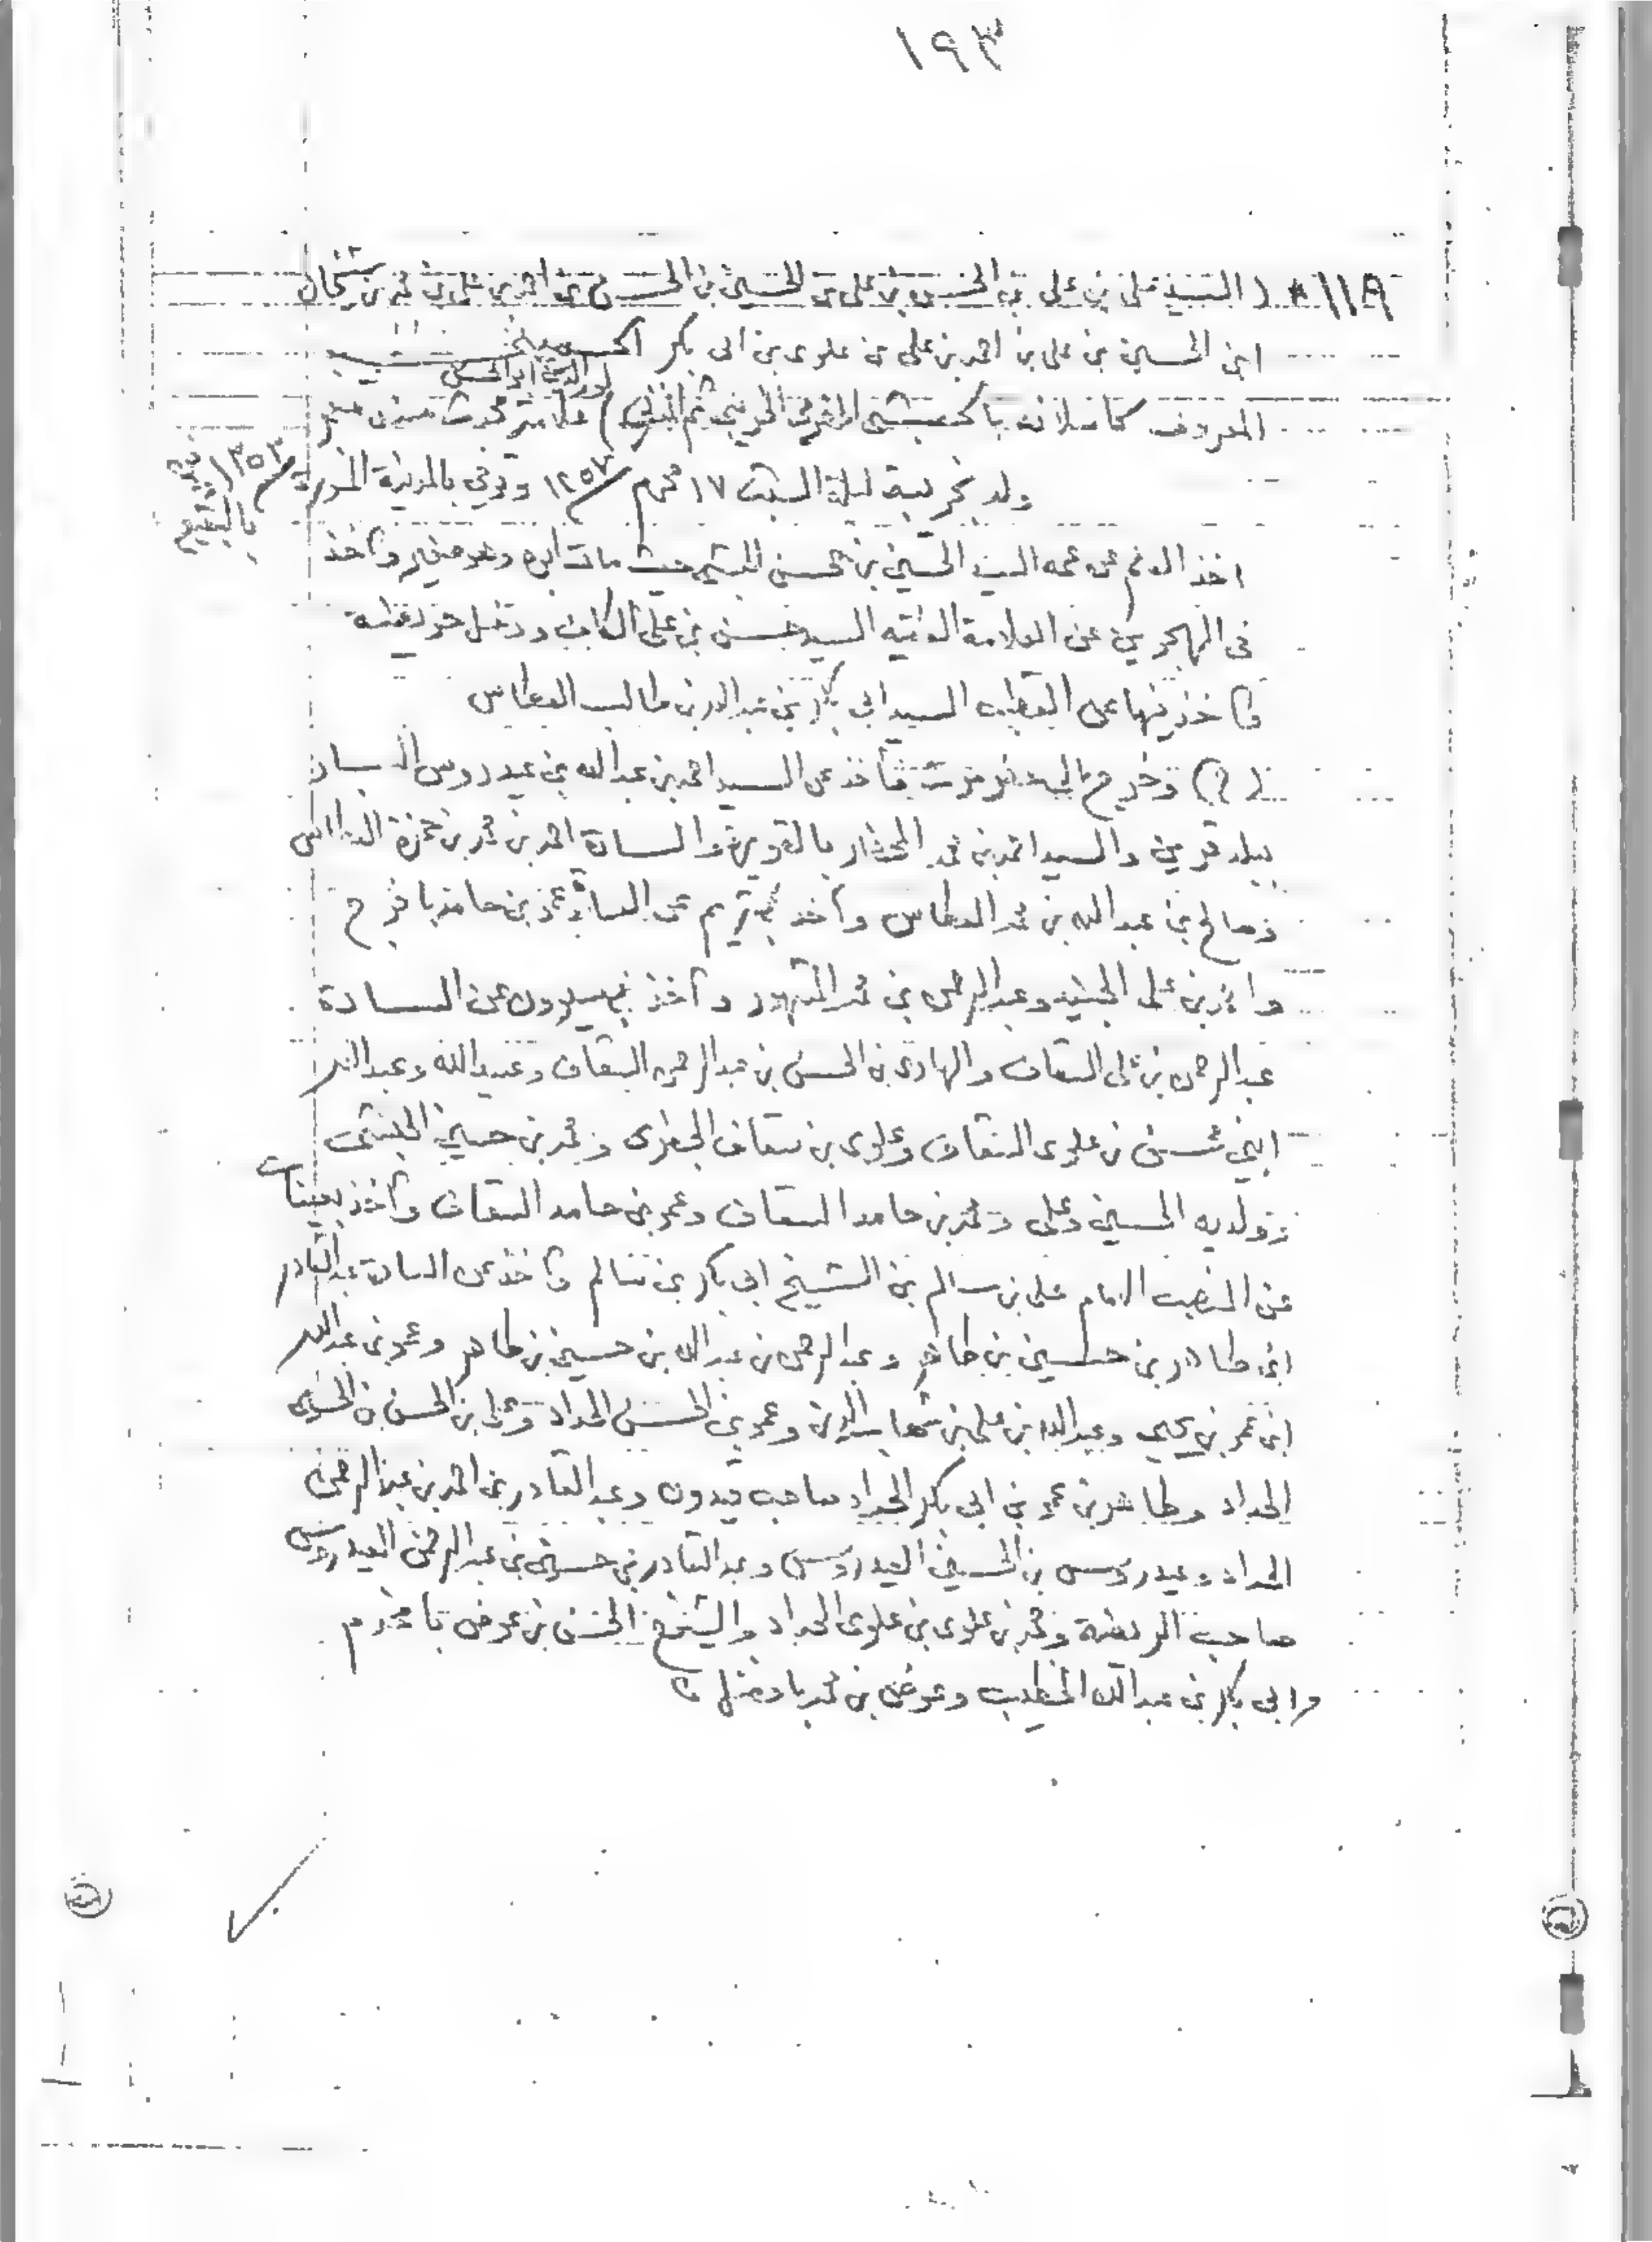 ١٩٣
١١٩ * ( السيد علي بن علي بن الحسن بن علي بن الحسين بن الحسن بن احمد بن علي بن محمد بن شيخان
ابن الحسين بن علي بن احمد بن علي بن علوي بن ابي بكر
المعروف كاسلافه بالحبشي ثم المدني ) علامة محدث مسند معمر
ولد ليلة السبت ١٧ محرم وتوفي بالمدينة المنورة ١٣٥٣
بالبقيع
اخذ العلم عن عمه السيد الحسين بن حيث مات ابوه وهو صغير وأخذ
في الهجرين عن العلامة الفقيه السيد حسن بن علي الكاف ودخل
فأخذ فيها عن القطب السيد ابي بكر بن عبدالله بن طالب العطاس
( ٢ ) وخرج الى حضرموت فأخذ عن السيد احمد بن عبدالله بن عيدروس البار
ببلد والسيد احمد بن محمد المحضار بالقويرة والسادة احمد بن محمد بن حمزة العطاس
وصالح بن عبدالله بن محمد العطاس وأخذ بتريم عن السادة عمر بن حامد بافرج
واحمد بن علي الجنيد وعبدالرحمن بن محمد المشهور وأخذ بسيوون عن السادة
عبدالرحمن بن علي السقاف والهادي بن الحسن بن عبدالرحمن السقاف وعبيدالله وعبدالله
ابني محسن بن علوي السقاف وعلوي بن سقاف الجفري ومحمد بن حسين الحبشي
وولديه الحسين وعلي ومحمد بن حامد السقاف وعمر بن حامد السقاف وأخذ بعينات
عن المنصب الامام علي بن سالم بن الشيخ ابي بكر بن سالم وأخذ عن السادة عبدالقادر
ابن طاهر بن حسين بن طاهر وعبدالرحمن بن عبدالله بن حسين بن طاهر وعمر بن عبدالله
ابن عمر بن يحيى وعبدالله بن علي بن شهاب الدين وعمر بن الحسن الحداد وعلي بن الحسن بن الحسين
الحداد وطاهر بن عمر بن ابي بكر الحداد صاحب قيدون وعبدالقادر بن احمد بن عبدالرحمن
الحداد وعيدروس بن الحسين العيدروس وعبدالقادر بن حسين بن عبدالرحمن العيدروس
صاحب ومحمد بن علوي بن علوي الحداد والشيخ الحسن بن عوض بامخرم
وابي بكر بن عبدالله الخطيب وعوض بن محمد بافضل